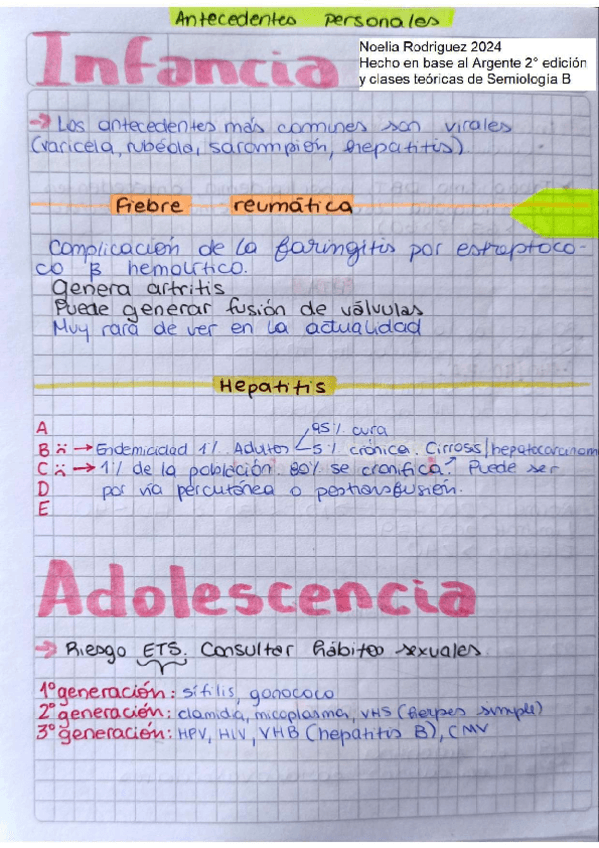 Antecedentes personales
Infancia
Noelia Rodriguez 2024
Hecho en base al Argente 2° edición
y clases teóricas de Semiología B
→ Los antecedentes más comunes son virales
(varicela, rubéola, sarampión, hepatitis)
Fiebre reumática
Complicación de la faringitis por estreptoco-
co β hemolítico.
Genera artritis
Puede generar fusión de válvulas
Muy rara de ver en la actualidad
Hepatitis
A
95% cura
B :( → Endemicidad 1% Adultos 5% crónica. Cirrosis/hepatocarcinom
C :( → 1% de la población. 80% se cronifica. Puede ser
D por vía percutánea o postransfusión.
E
Adolescencia
→ Riesgo ETS. Consultar hábitos sexuales.
1° generación: sífilis, gonococo
2° generación: clamidia, micoplasma, VHS (herpes simple)
3° generación: HPV, HIV, VHB (hepatitis B), CMV